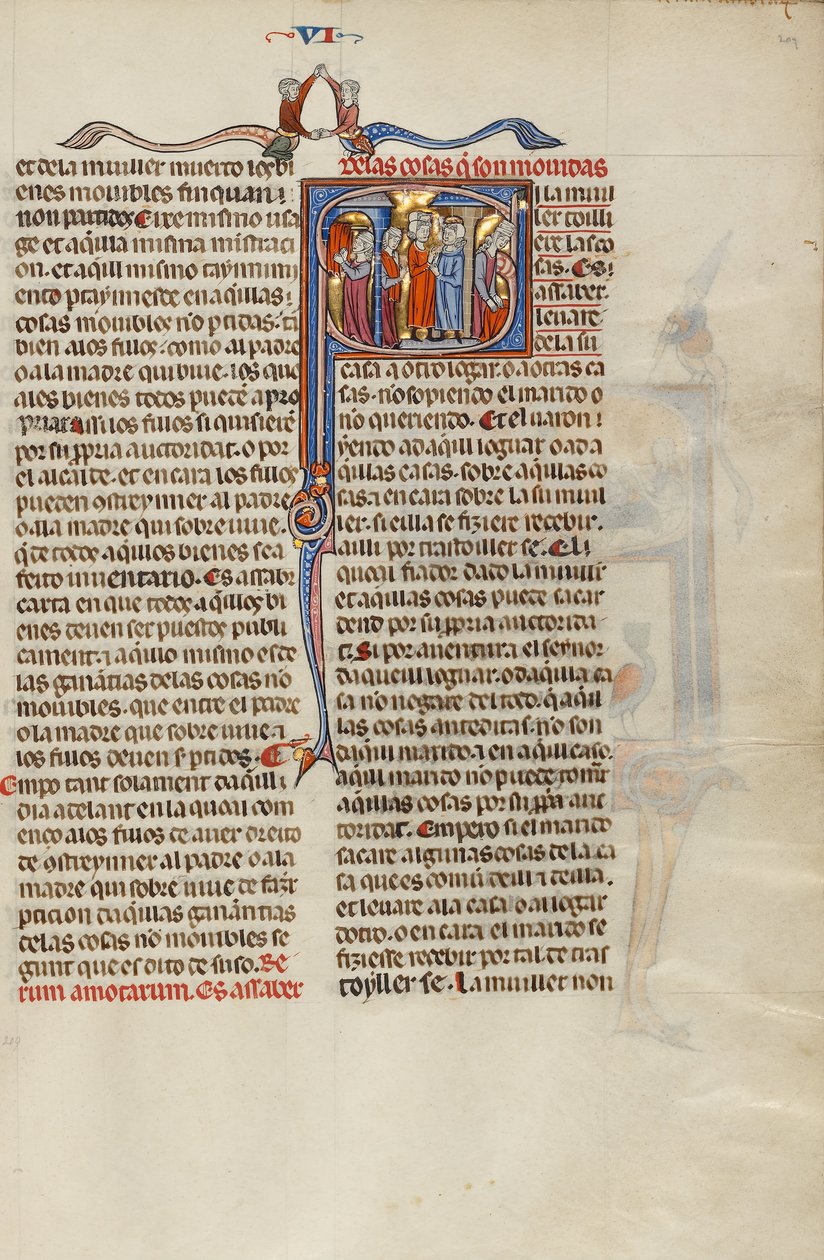 VI
209
et dela muiller muerto los bi
enes mouibles finquan i
non partidos Eixe mismo usa
ge et aq̃lla misma mistraci
on. et aq̃ll mismo
cosas mouibles no p̃tidas. tã
bien alos fillos. como al padre
o ala madre qui biue. los qua
ales bienes todos puedẽ a pro
los fillos si quisierẽ
por su p̃pria auctoridat. o por
el alcalde. et en cara los fillos
pueden 9streynner al padre
o ala madre qui sobre uiue.
q̃ de todos aq̃llos bienes sea
feito inuentario. Es assabr
carta en que todos aq̃llos bi
enes deuen ser puestos publi
cament. ⁊ aq̃llo mismo es de
las ganãtias delas cosas no
mouibles. que entre el padre
o la madre que sobre uiue ⁊
los fillos deuen s̃ p̃tidos. E
Empo tant solament daq̃ll
dia adelant en la quoal com
enço alos fillos de auer dreito
de 9streynner al padre o ala
madre qui sobre uiue de fazr̃
p̃ticion daq̃llas ganãntias
delas cosas no mouibles se
gunt que es dito de suso. Re
rum amotarum. Es assaber
Delas cosas q̃ son mouidas
Si la muil
ler toilli
ere las co
sas. Es
assaber.
leuare
de la su
casa a otro logar. o a otras ca
sas. no sopiendo el marido o
no queriendo. Et el uaron
yendo ad aq̃ll loguar o ad a
q̃llas casas. sobre aq̃llas co
sas ⁊ en cara sobre la su muil
ler. si eilla se fiziere recebir.
ailli por trastoiller se. El
quoal fiador dado la muiller
et aq̃llas cosas puede sacar
dend por su p̃pria auctorida
t. Si por auentura el seynor
daqueill loguar. o daq̃lla ca
sa no negare del todo. q̃ aq̃ll
las cosas anteditas. no son
daq̃ll marido. ⁊ en aq̃ll caso.
aq̃ll marido no puede tomar
aq̃llas cosas por su p̃p̃a auc
toridat. Empero si el marido
sacare algunas cosas de la ca
sa que es comũ deill ⁊ deilla.
et leuare a la casa o al logar
dotro. o en cara el marido se
fiziesse recebir por tal de tras
toyller se. La muiller non